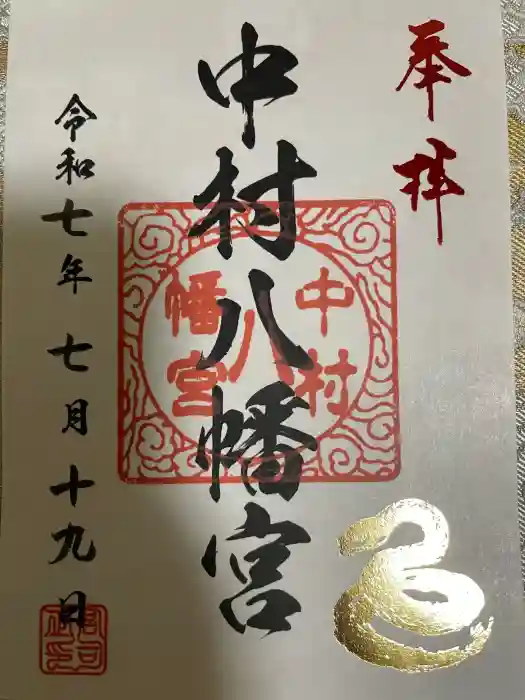 奉拝
中村八幡宮
中村
八
幡宮
令和七年七月十九日